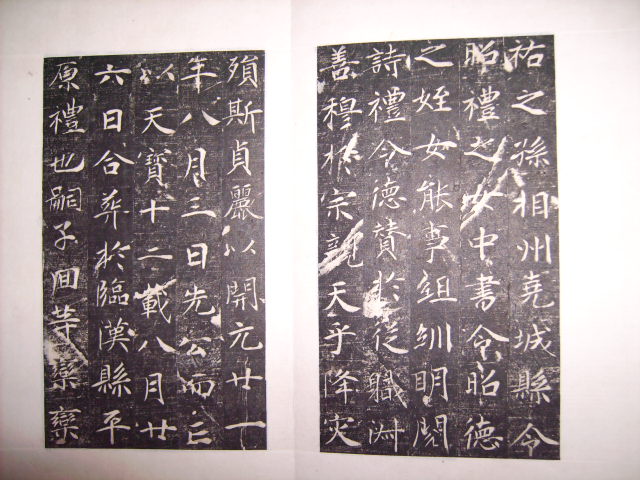 祐之孫相州堯城縣令
昭禮之女中書令昭德
之姪女能事詛訓明閑
詩禮令德贊於從職淋
善穆於宗親天乎降灾
殞斯貞麗以開元廿一
年八月三日先公而亡
以天寶十二載八月廿
六日合葬於臨漢縣平
原禮也嗣子回等欒欒